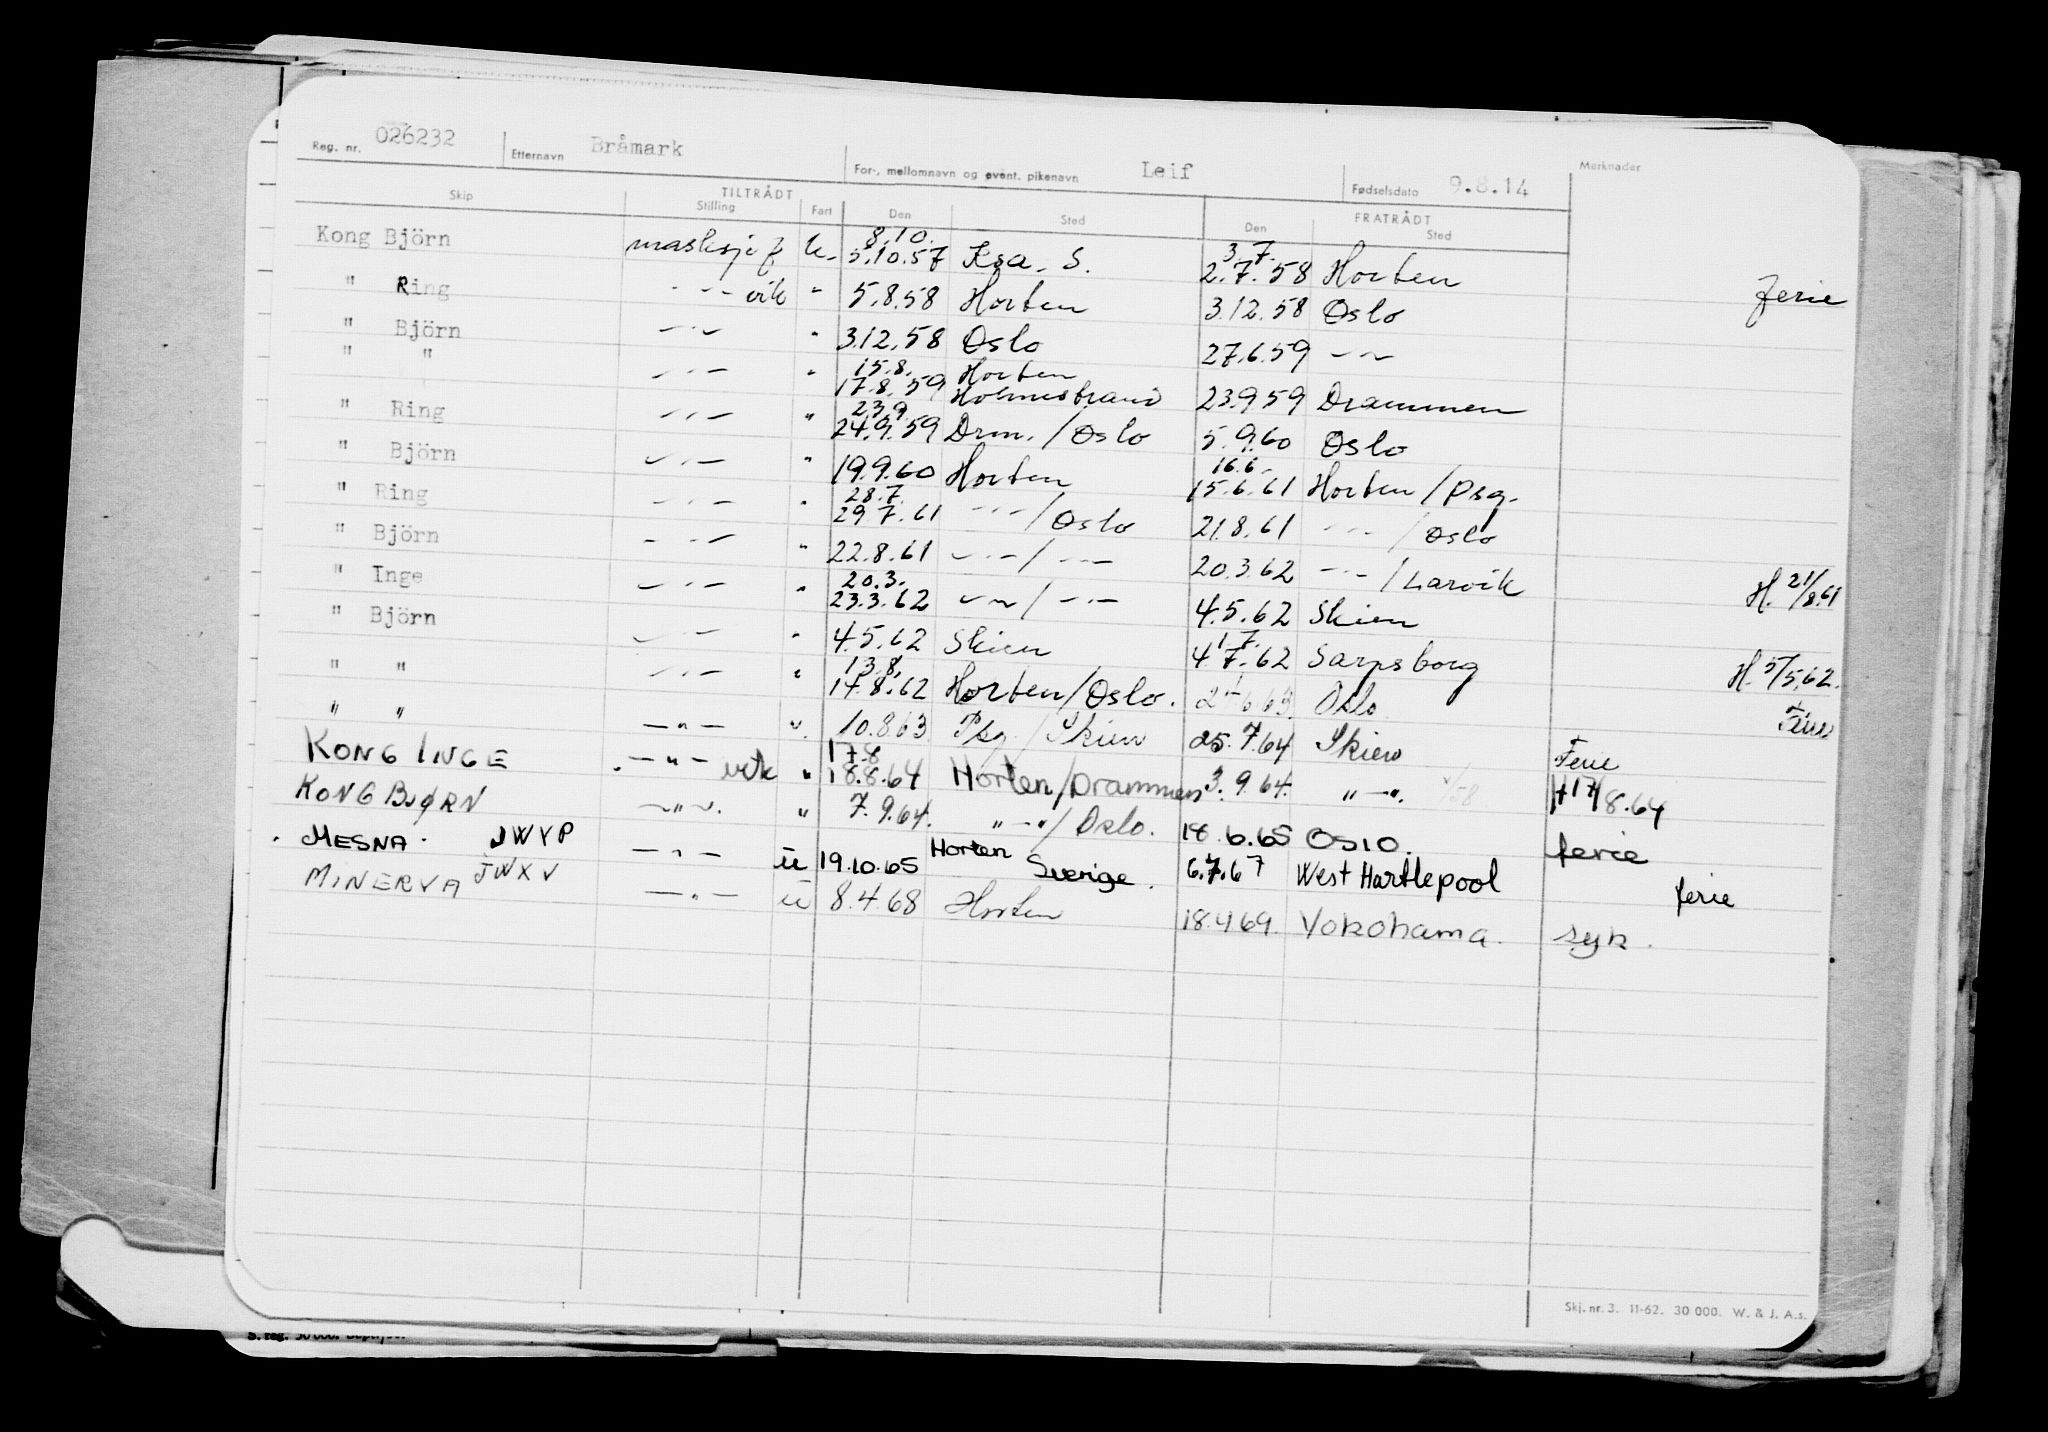 Reg. nr. 026232 Etternavn Bråmark For-, mellomnavn og event. pikenavn Leif Fødselsdato 9.8.14 Merknader
TILTRÅDT FRATRÅDT
Skip Stilling Fart Den Sted Den Sted
8.10. 3.7.
Kong Björn masksjef u. 5.10.57 Ksa. S. 2.7.58 Horten ferie
" Ring -"- vik " 5.8.58 Horten 3.12.58 Oslo
" Björn -"- " 3.12.58 Oslo 27.6.59 -"-
15.8. Horten
" " -"- " 17.8.59 Holmestrand 23.9.59 Drammen
23.9.
" Ring -"- " 24.9.59 Drm. / Oslo 5.9.60 Oslo
16.6.
" Björn -"- " 19.9.60 Horten 15.6.61 Horten / Psg.
28.7.
" Ring -"- " 29.7.61 -"- / Oslo 21.8.61 -"- / Oslo
" Björn -"- " 22.8.61 -"- / -"- 20.3.62 -"- / Larvik H. 21/8.61
20.3.
" Inge -"- " 23.3.62 -"- / -"- 4.5.62 Skien
1.7.
" Björn -"- " 4.5.62 Skien 4.7.62 Sarpsborg H. 5/5.62.
13.8.
" " -"- " 14.8.62 Horten / Oslo. 6.63 Oslo Ferie
" " -"- " 10.8.63 Psg. / Skien 25.7.64 Skien Ferie
17.8
KONG INGE -"- vik " 18.8.64 Horten/Drammen 3.9.64. "-". H 17/8.64
KONG BJØRN -"-. " 7.9.64. "-" / Oslo. 18.6.65 OSLO. ferie
MESNA JWYP -"- u 19.10.65 Horten Sverige. 6.7.67 West Hartlepool ferie
MINERVA JWXV -"- u 8.4.68 Horten 18.4.69. Yokohama. syk.
Skj. nr. 3. 11-62. 30 000. W. & J. A.s.